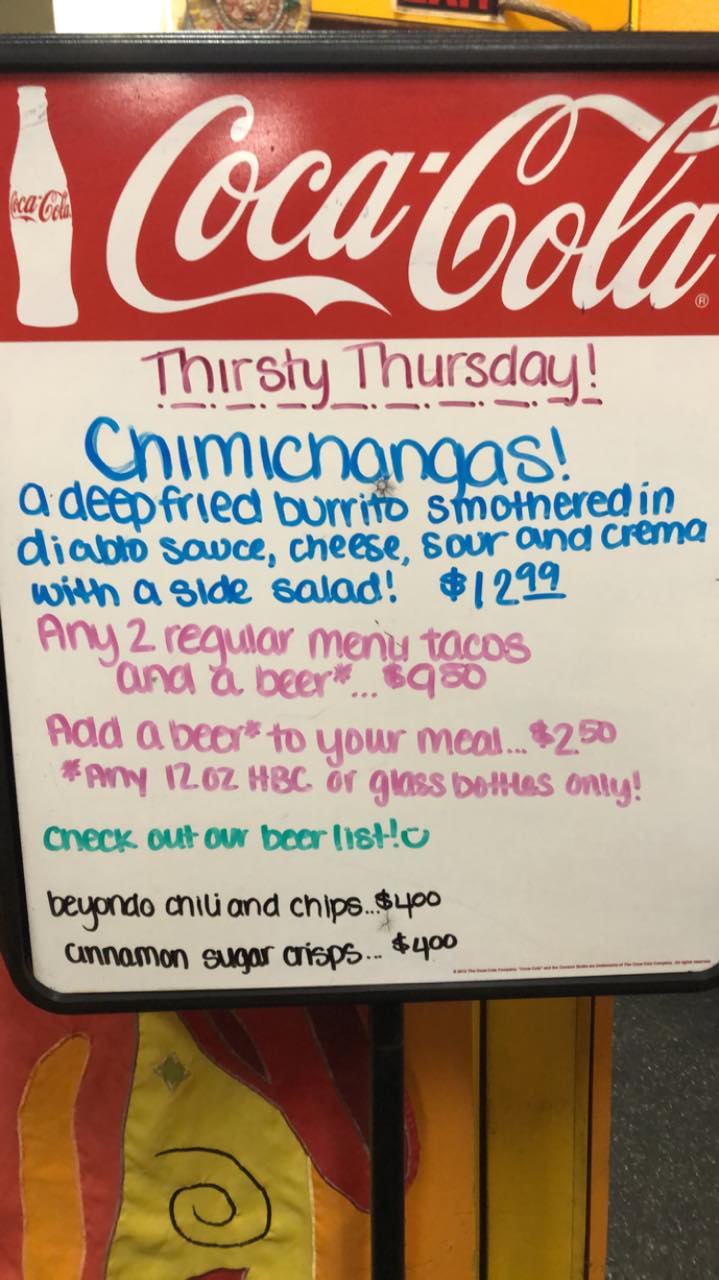 Coca-Cola
Coca-Cola®
Thirsty Thursday!
Chimichangas!
a deep fried burrito smothered in
diablo sauce, cheese, sour and crema
with a side salad! $12.99
Any 2 regular menu tacos
and a beer*... $9.50
Add a beer* to your meal... $2.50
*Any 12 oz HBC or glass bottles only!
Check out our beer list!
beyondo chili and chips...$4.00
cinnamon sugar crisps... $4.00